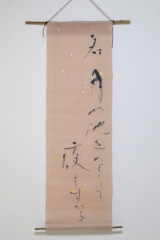 名月や池をめぐりて
夜もすがら